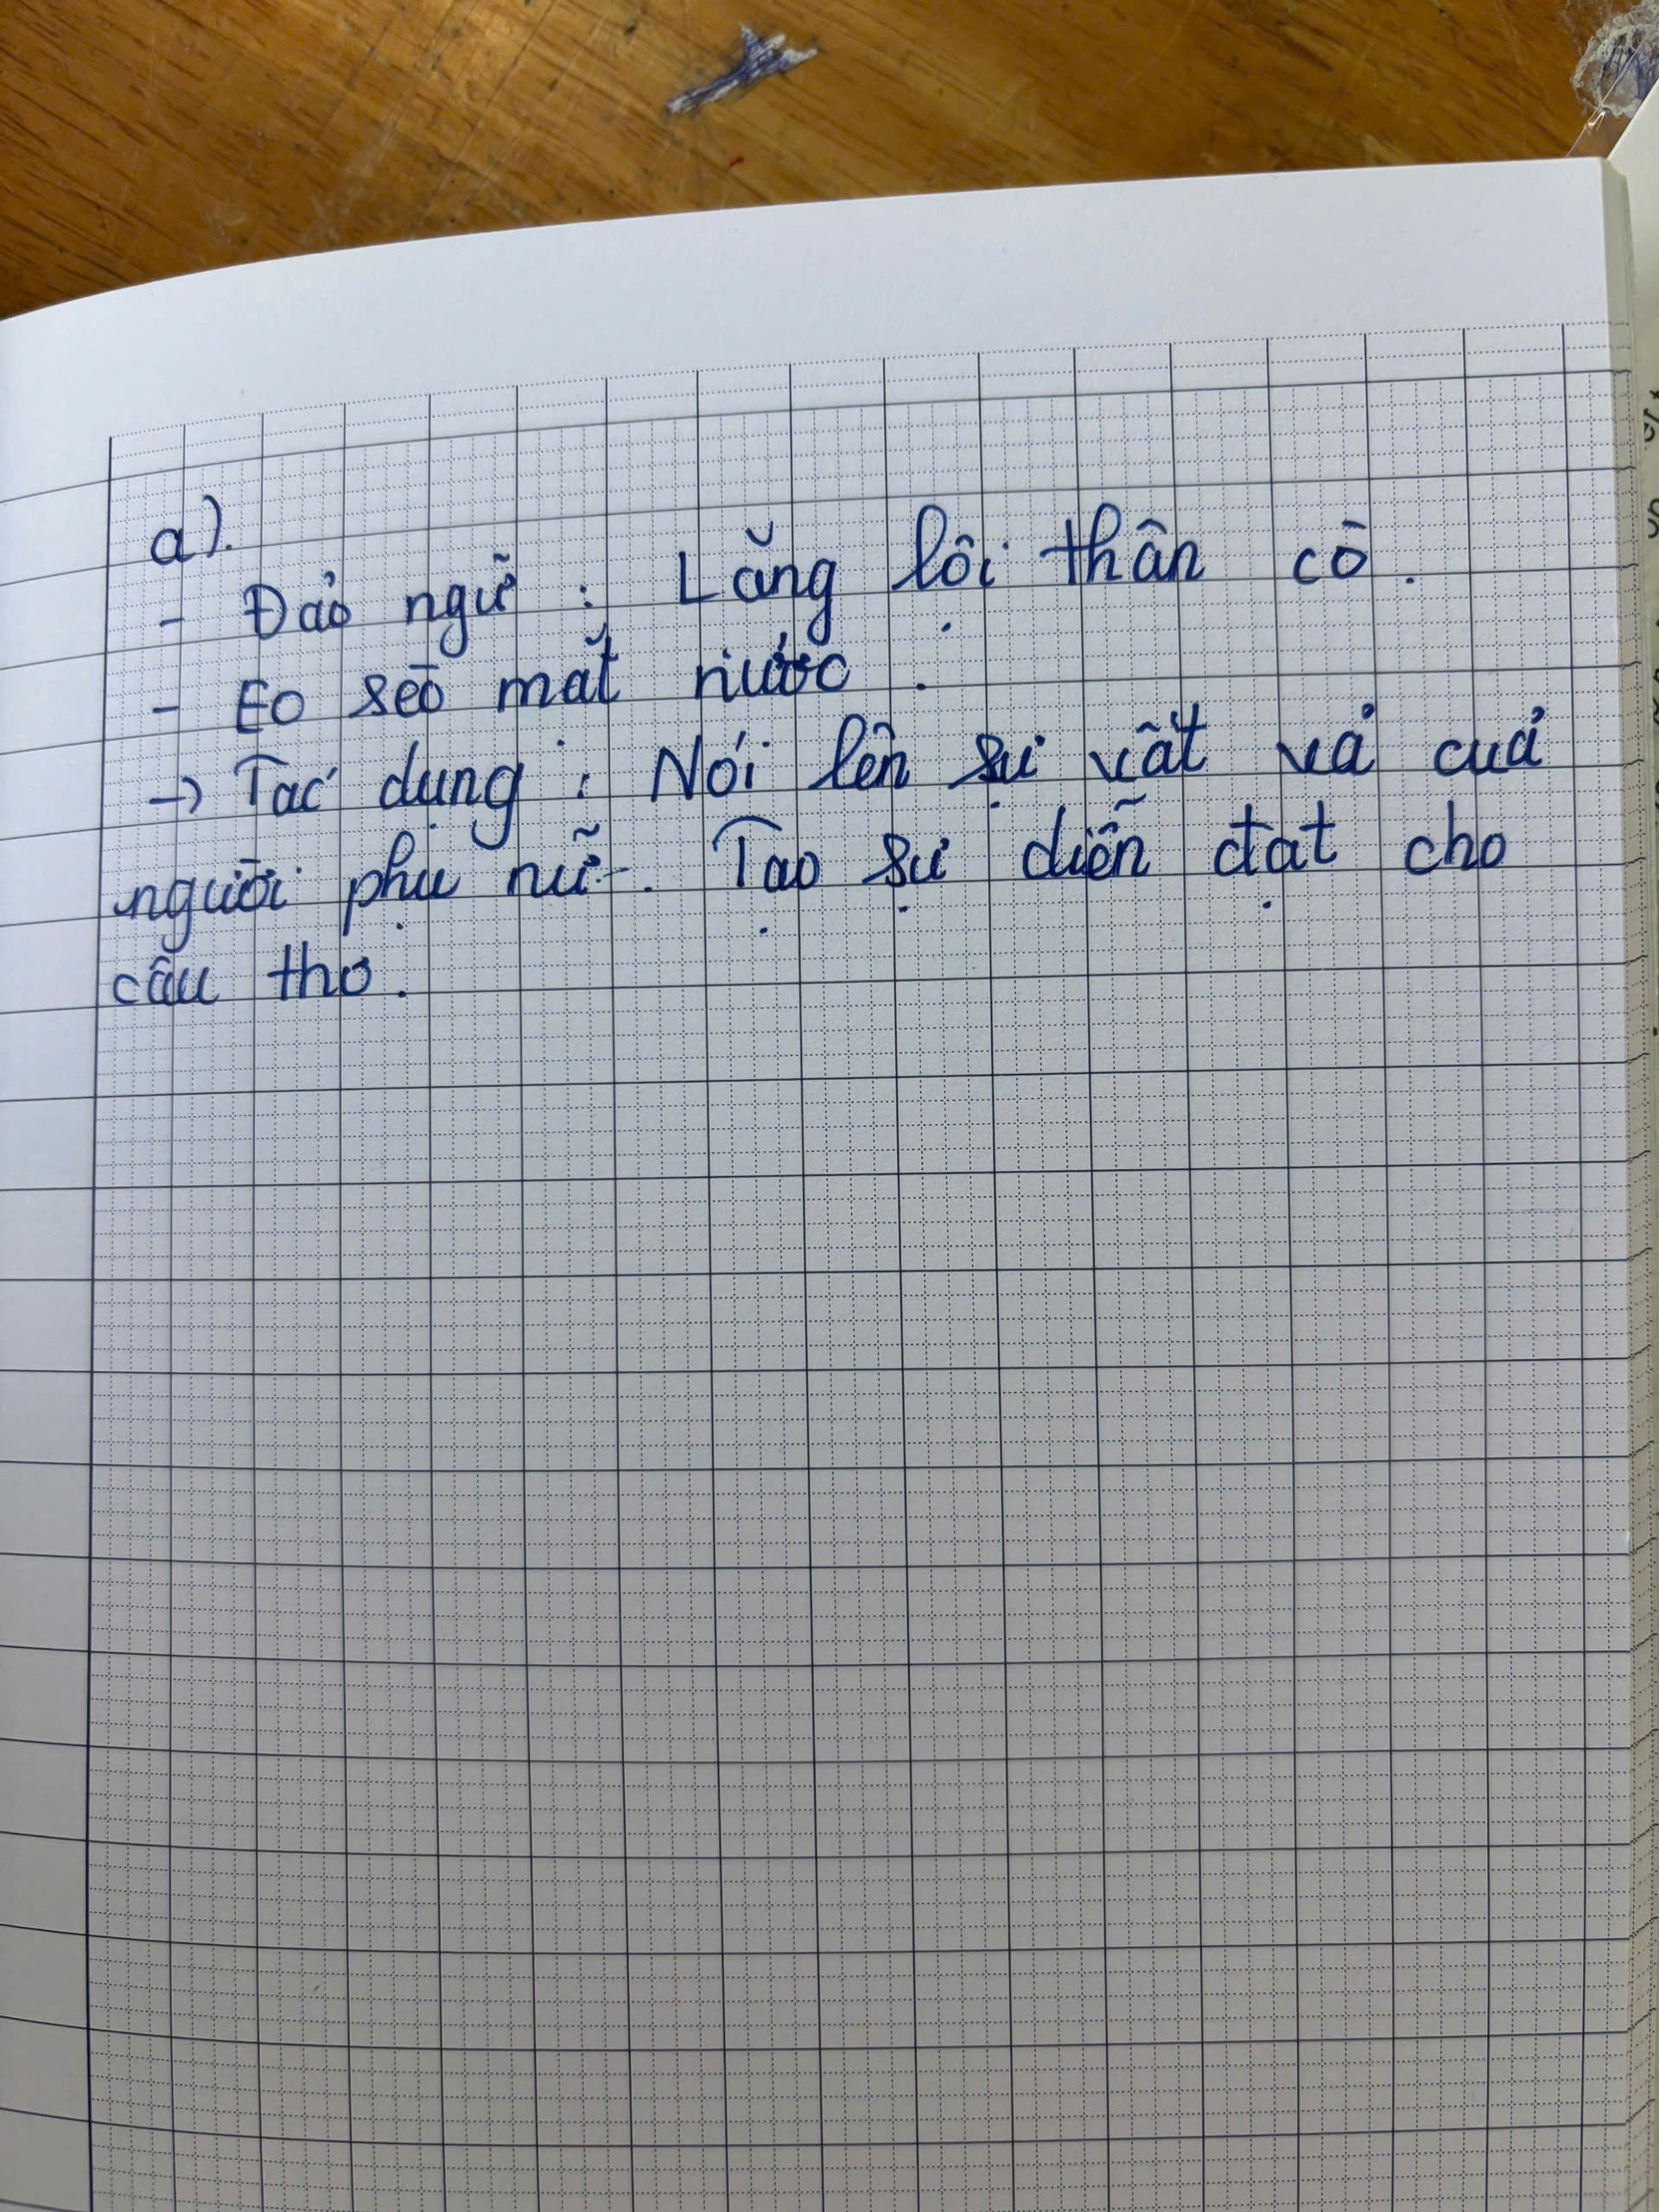 a).
- Đảo ngữ : Lặn lội thân cò.
- Eo sèo mặt nước.
→ Tác dụng : Nói lên sự vất vả của
người phụ nữ. Tạo sự diễn đạt cho
câu thơ.